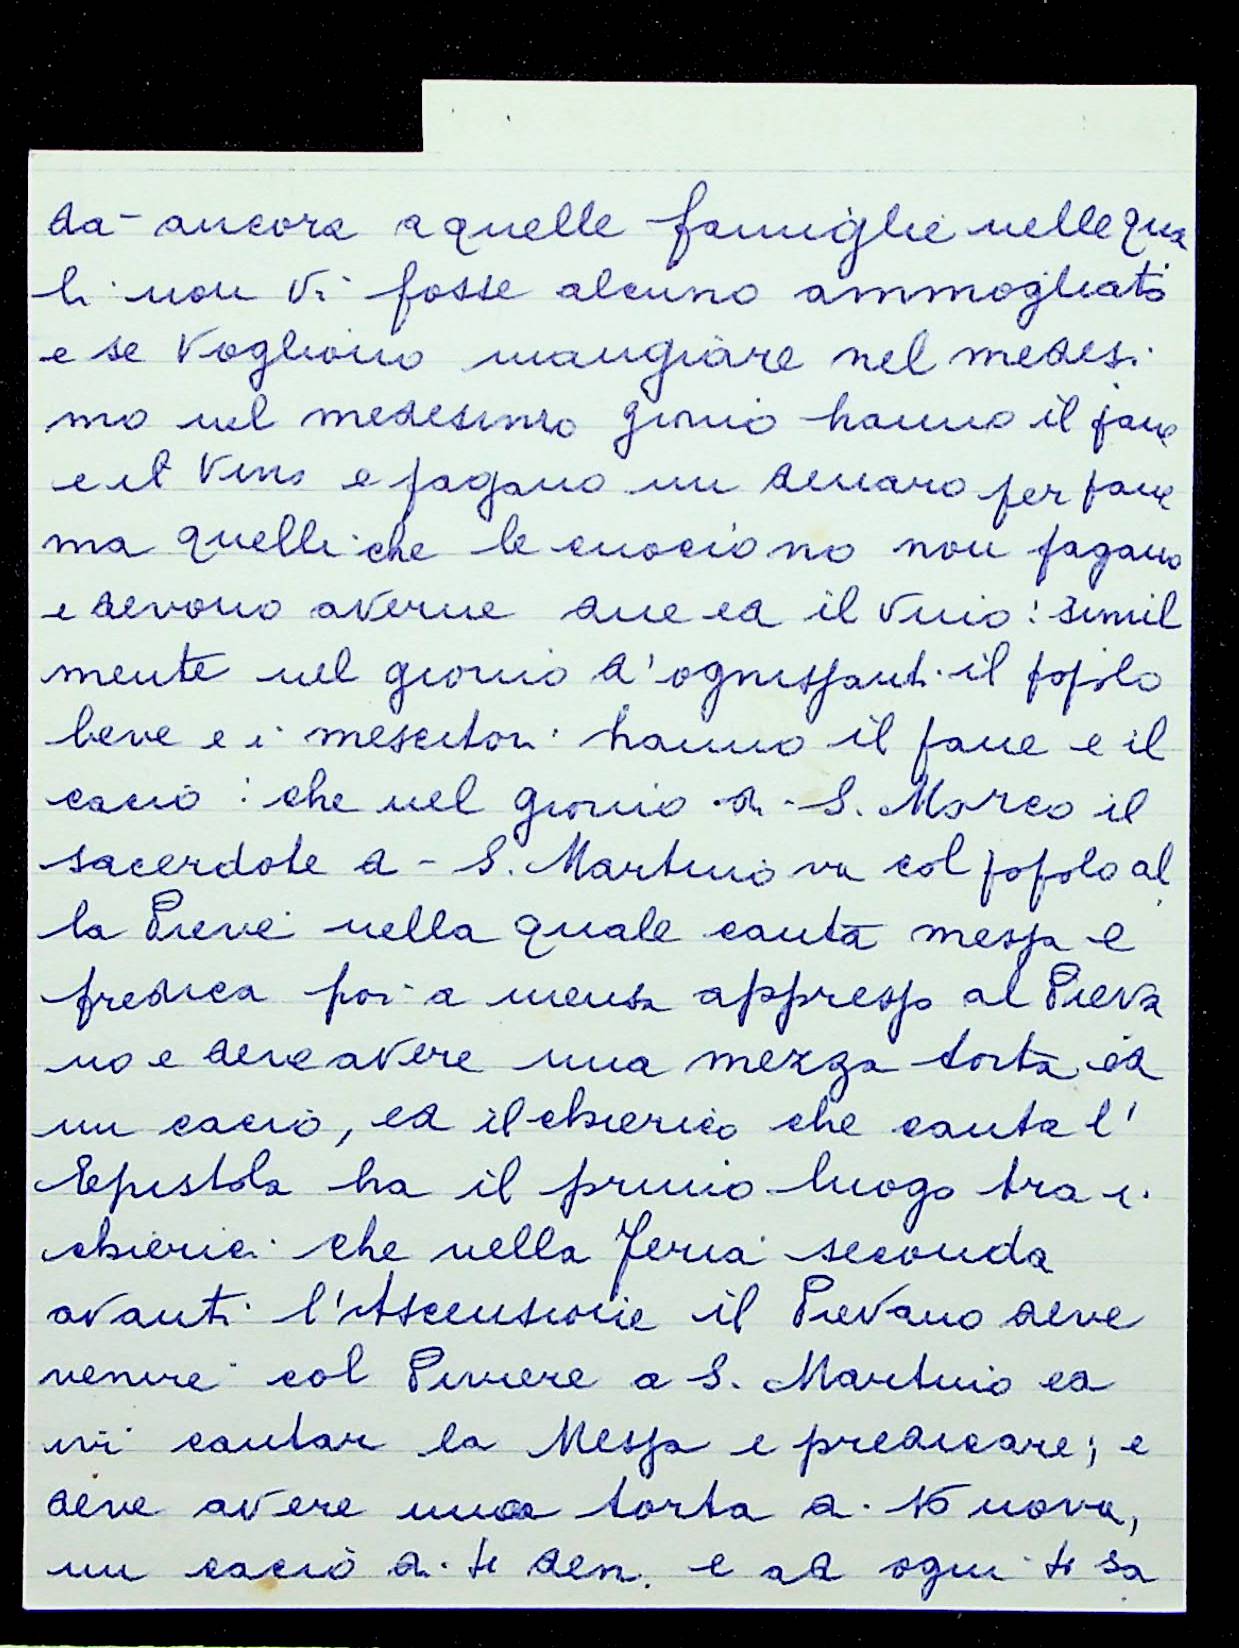 da- ancora a quelle famiglie nelle qua
li non vi fosse alcuno ammogliato
e se vogliono mangiare nel medesi
mo nel medesimo giorno hanno il pane
e il vino e pagano un denaro per pane
ma quelli che le cuociono non pagano
e devono averne due ed il vino: simil
mente nel giorno d'ognissanti il popolo
beve e i mescitori hanno il pane e il
cacio: che nel giorno di S. Marco il
sacerdote d- S. Martino va col popolo al
la Pieve nella quale canta messa e
predica poi a mensa appresso al Pieva
no e deve avere una mezza torta ed
un cacio, ed il chierico che canta l'
Epistola ha il primo luogo tra i
chierici che nella Feria seconda
avanti l'Ascensione il Pievano deve
venire col Piviere a S. Martino ed
ivi cantar la Messa e predicare; e
deve avere una torta d. 10 uova,
un cacio di den. e ad ogni sa